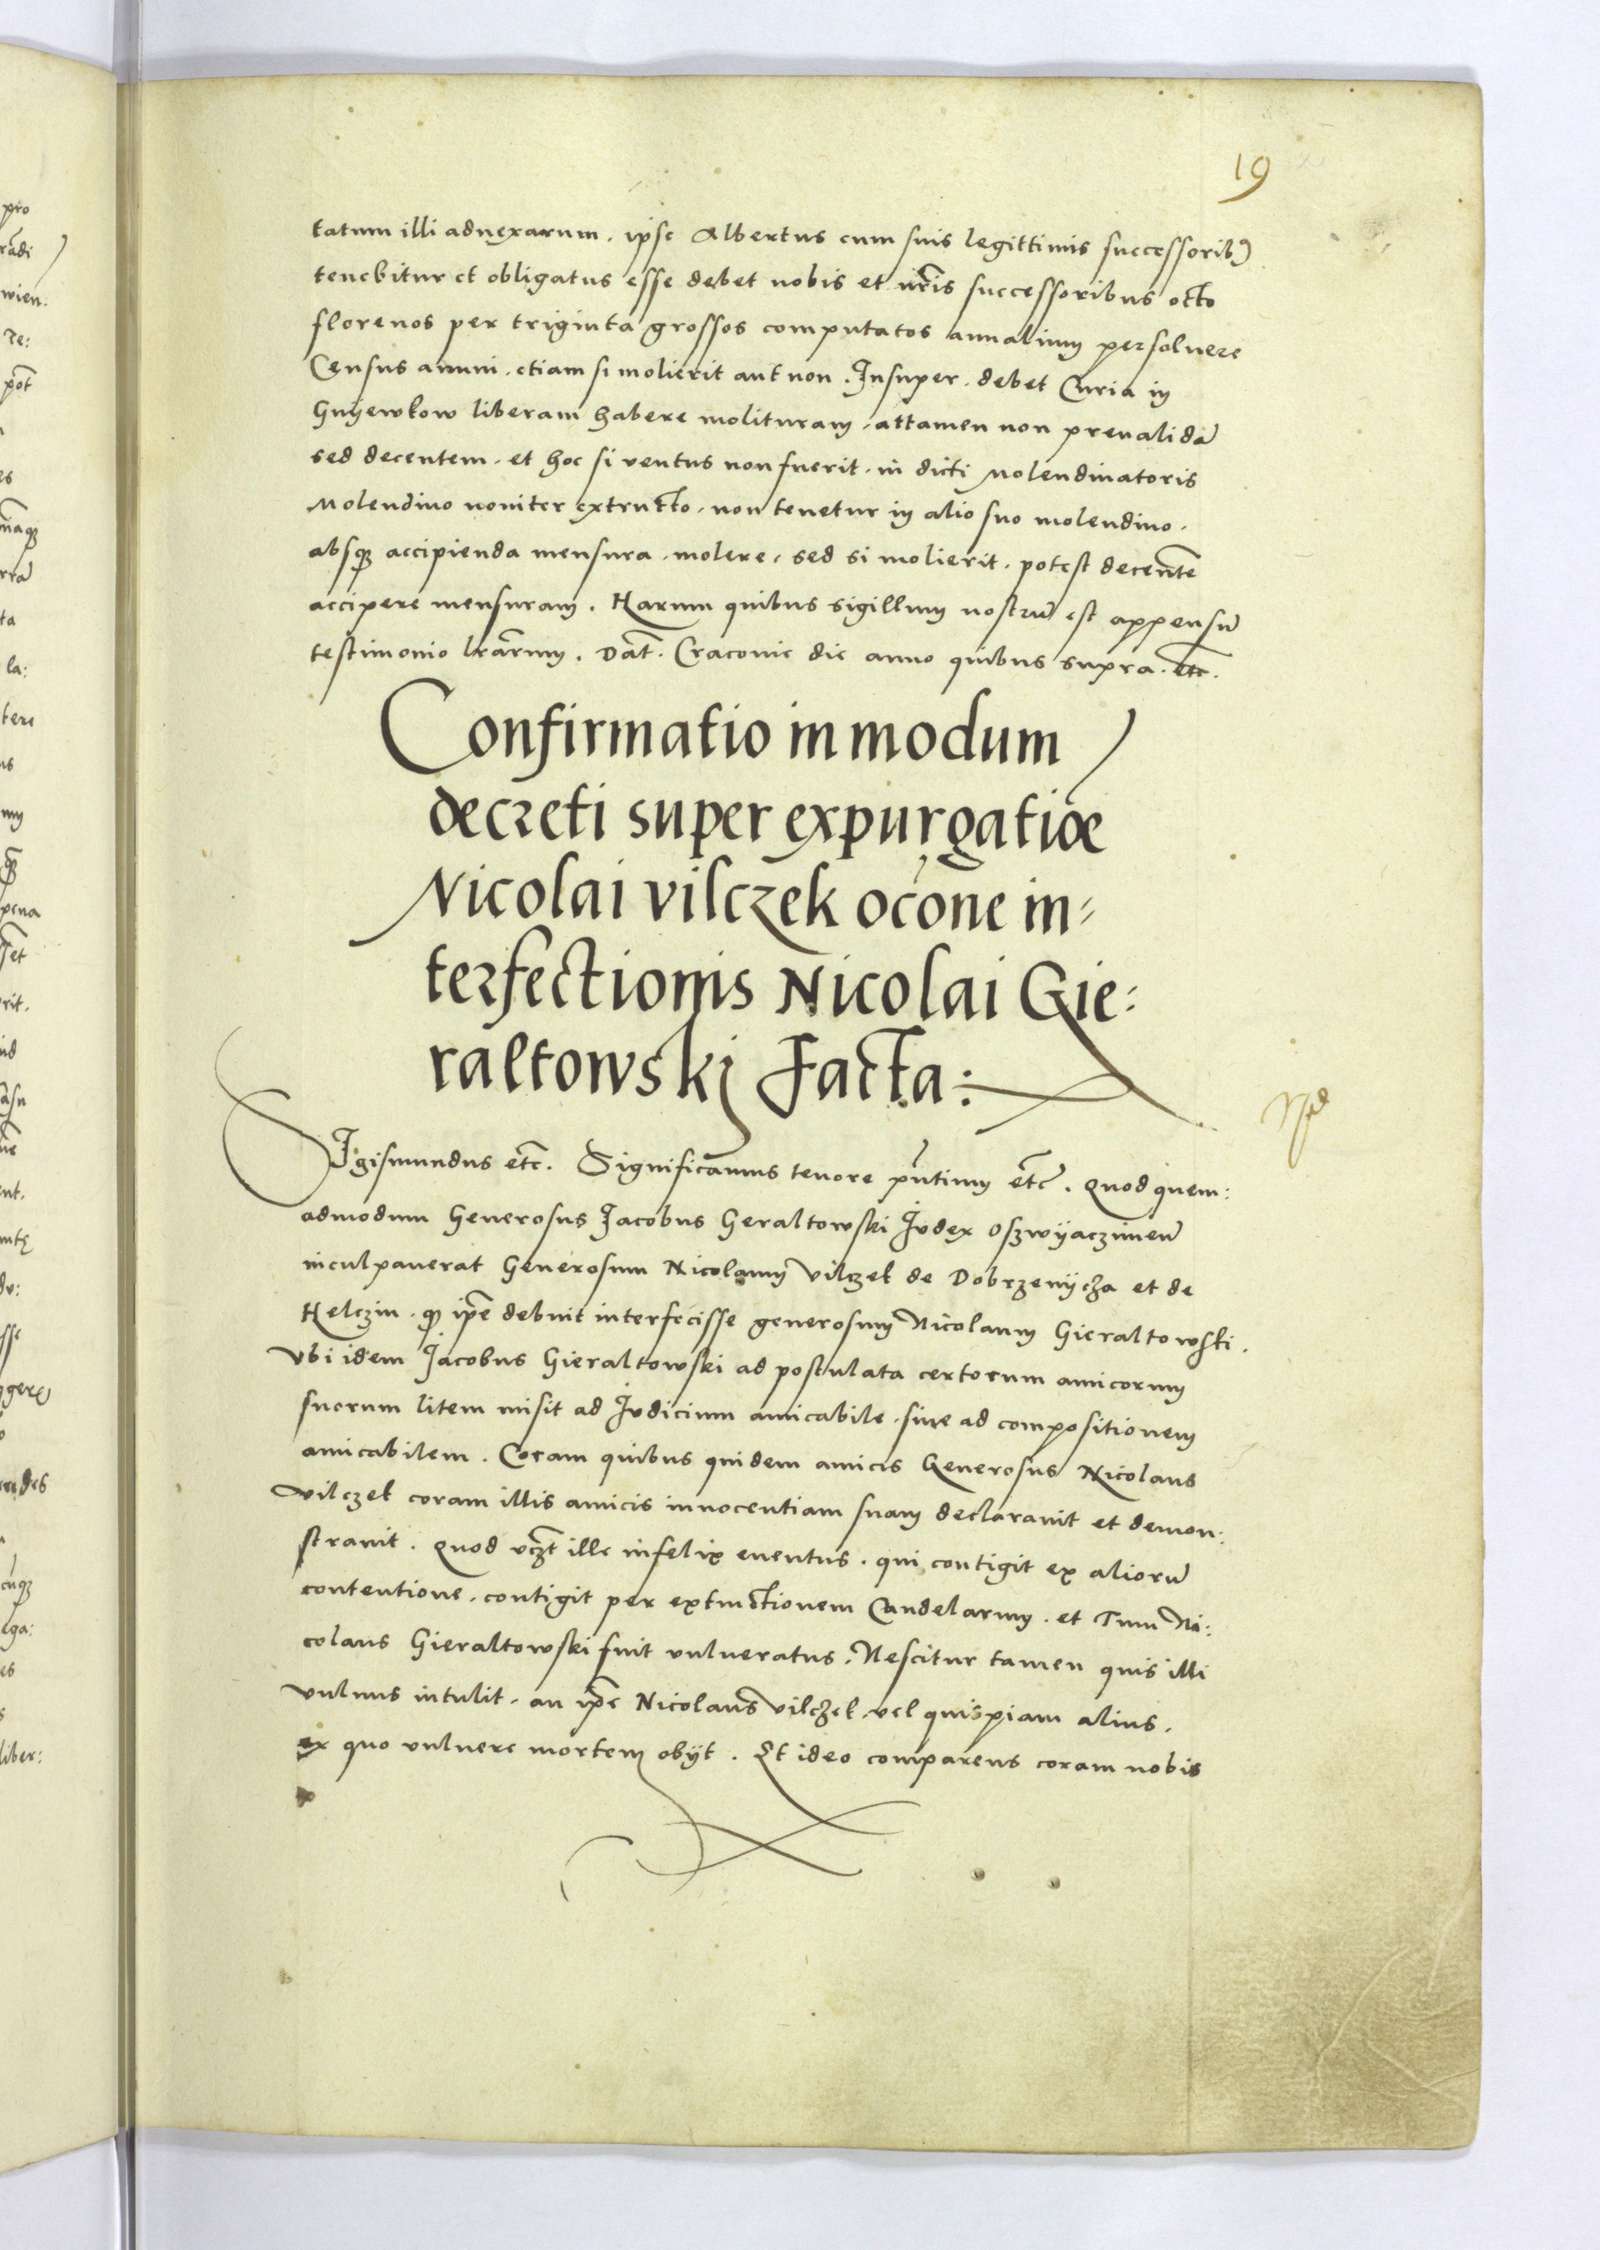 19
tatum illi adnexarum. ipse Albertus cum suis legittimis successorib9
tenebitur et obligatus esse debet nobis et nr̃is successoribus octo
florenos per triginta grossos computatos annalium persoluere
Census annui. etiam si molierit aut non. Insuper. debet Curia in
Gnÿewkow liberam habere molituram. attamen non preualidã
sed decentem. et hoc si ventus non fuerit. in dicti Molendinatoris
Molendino noniter extructo. non tenetur in alio suo molendino.
absq3 accipienda mensura. molere. sed si molierit. potest decentẽ
accipere mensuram. Harum quibus sigillum nostrũ est appensũ
testimonio lr̃arum. Dat̃. Cracovie die anno quibus supra. etc̃.
Confirmatio in modum
decreti super expurgatiõe
Nicolai vilczek oc̃one in=
terfectionis Nicolai Gie:
raltowskj Facta:
SIgismundus etc̃. Significamus tenore pñtium etc̃. Quod quem:
admodum Generosus Jacobus Geraltowski Judex Oszwÿaczimeñ
inculpauerat Generosum Nicolaum Vilczek de Dobrzenÿcza et de
Helczin. q3 ip̃e debuit interfecisse generosum Nicolaum Gieraltowski.
Vbi idem Jacobus Gieraltowski ad postulata certorum amicorum
suorum litem misit ad Judicium amicabile. siue ad compositionem
amicabilem. Coram quibus quidem amicis Generosus Nicolaus
Vilczek coram illis amicis innocentiam suam declarauit et demon:
strauit. Quod vcz̃t ille infelix euentus. qui contigit ex aliorũ
contentione. contigit per extinctionem Candelarum. et Tum Ni:
colaus Gieraltowski fuit vulneratus. Nescitur tamen quis illi
vulnus intulit. an ip̃e Nicolaus Vilczek. vel quispiam alius.
ex quo vulnere mortem obÿt. Et ideo comparens coram nobis